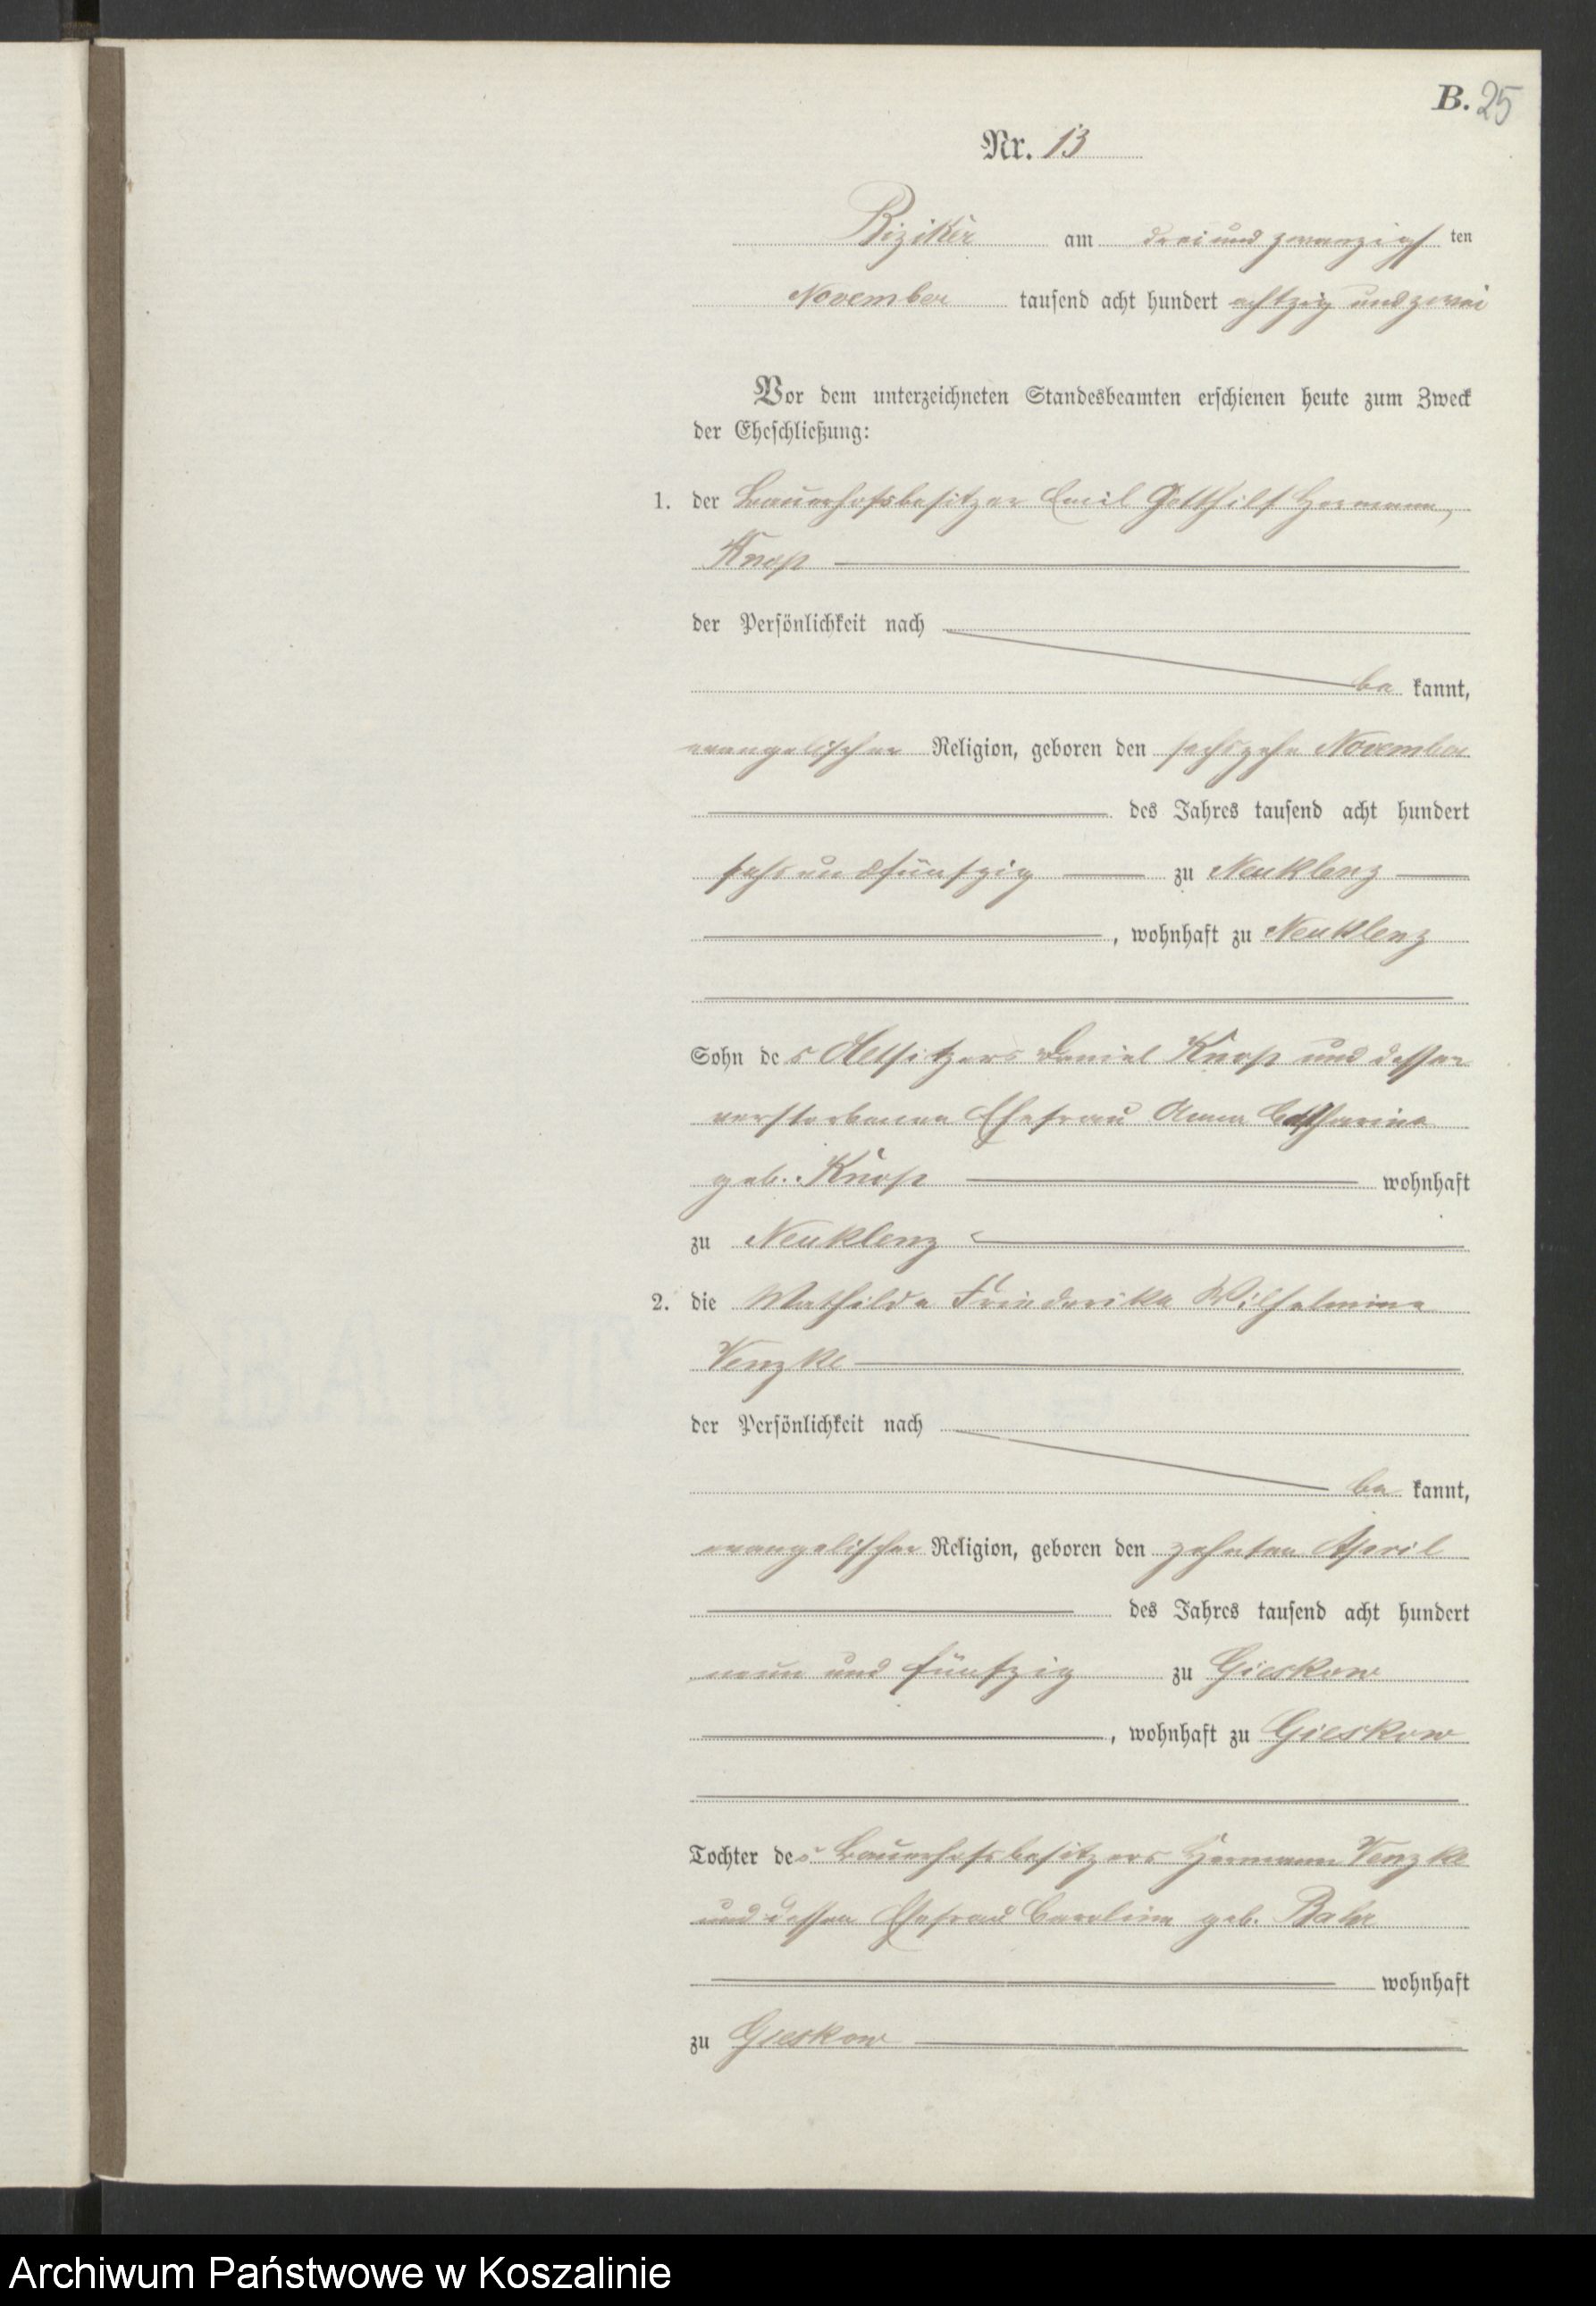 B. 25
Nr. 13
Biziker am drei und zwanzigsten
November tausend acht hundert achtzig und zwei
Vor dem unterzeichneten Standesbeamten erschienen heute zum Zweck
der Eheschließung:
1. der Bauerhofsbesitzer Emil Gotthilf Hermann,
Knop
der Persönlichkeit nach
be kannt,
evangelischer Religion, geboren den sechszehn November
des Jahres tausend acht hundert
sechsundfünfzig zu Neuklenz
, wohnhaft zu Neuklenz
Sohn des Altsitzers Daniel Knop und dessen
verstorbenen Ehefrau Anna Catharine
geb. Knop wohnhaft
zu Neuklenz
2. die Mathilde Friederike Wilhelmine
Venzke
der Persönlichkeit nach
be kannt,
evangelischer Religion, geboren den zehnten April
des Jahres tausend acht hundert
neun und fünfzig zu Gieskow
, wohnhaft zu Gieskow
Tochter des Bauerhofsbesitzers Hermann Venzke
und dessen Ehefrau Caroline geb.
wohnhaft
zu Gieskow
Archiwum Państwowe w Koszalinie